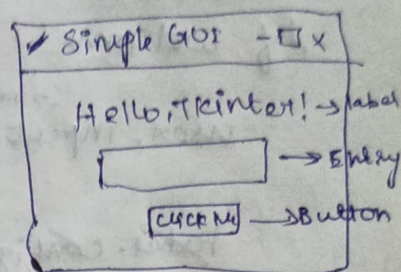 Simple GUI - □ x
Hello, Tkinter! → label
→ Entry
Click Me → Button